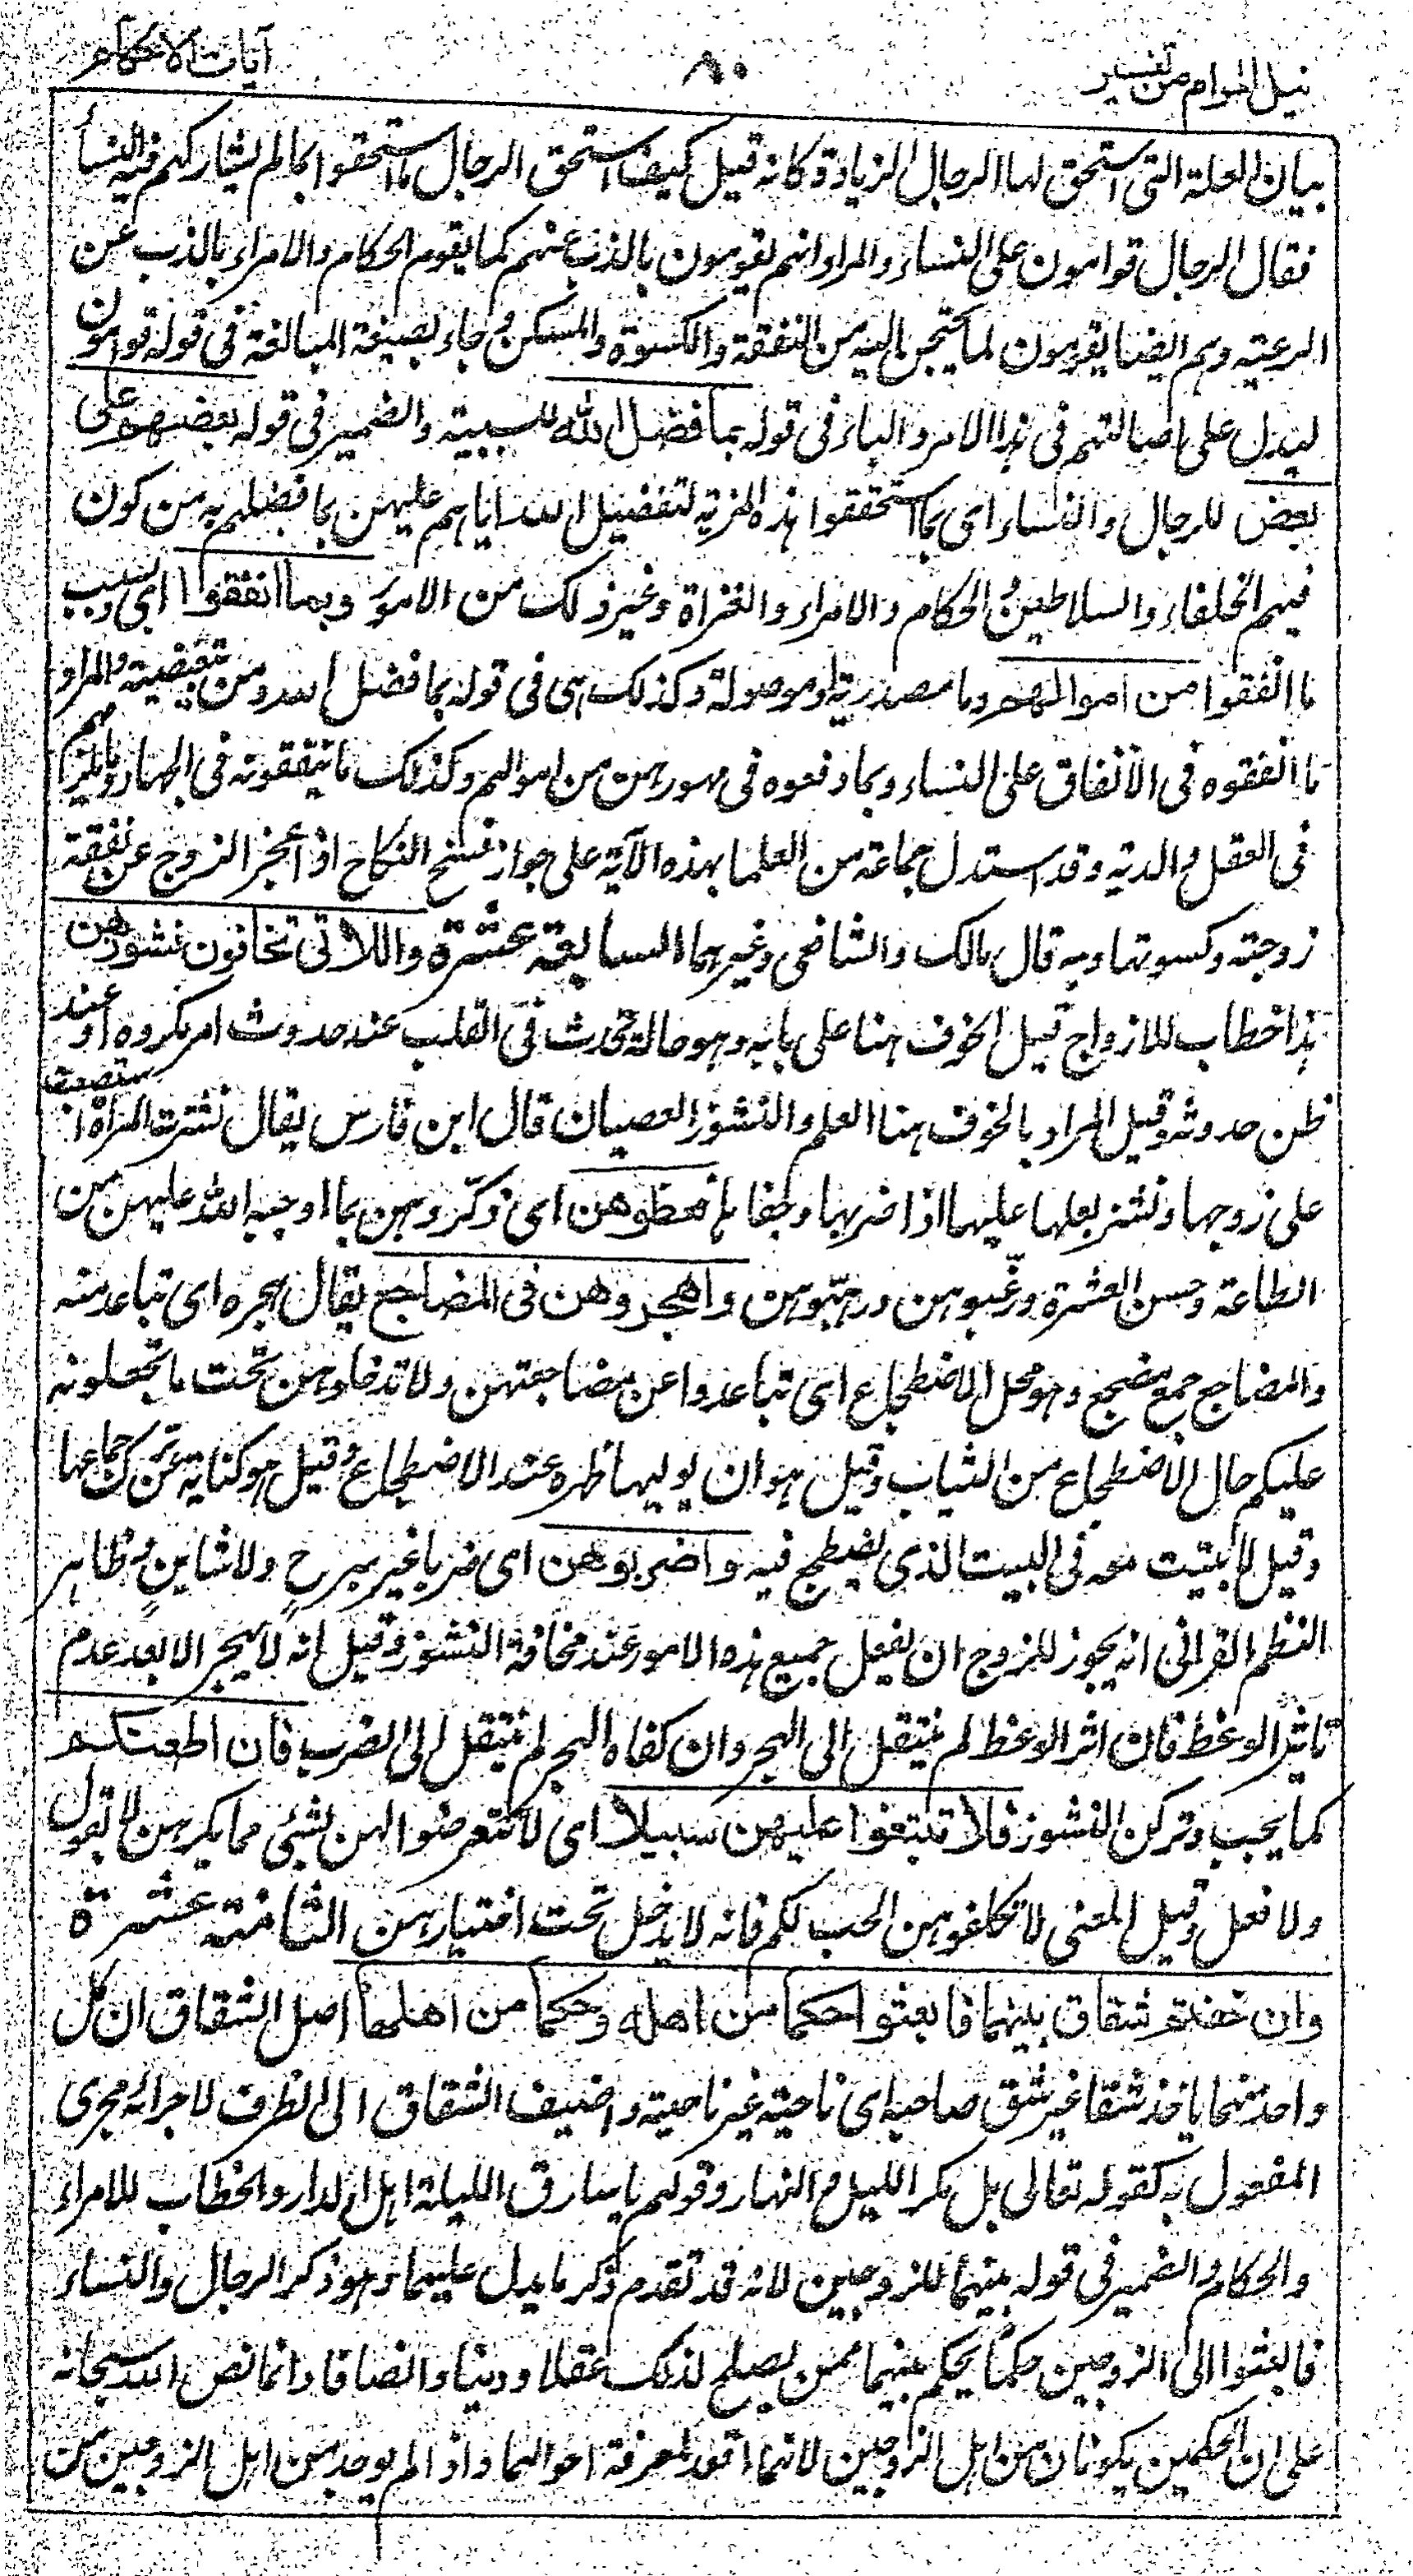 نيل المرام من تفسير
٨٠
آيات الاحكام
بيان العلة التى استحق لها الرجال الزيادة كانه قيل كيف استحق الرجال ما استحقوا بما لم يشاركهم فيه النسأ
فقال الرجال قوامون على النساء والمراد انهم يقومون بالذب عنهم كما يقوم الحكام والامراء بالذب عن
الرعية وهم ايضا يقومون لما يحتجن اليه من النفقة والكسوة والمسكن وجاء بصيغة المبالغة فى قوله قوامون
ليدل على اصالتهم فى هذا الامر والباء فى قوله بما فضل الله للسببية والضمير فى قوله بعضهم على
بعض للرجال والنساء اى بما استحققوا هذه المزية لتفضيل الله اياهم عليهن بما فضلهم به من كون
فيهم الخلفاء والسلاطين والحكام والامراء والغزاة وغير ذلك من الامور وبما انفقوا اى وبسبب
ما انفقوا من اموالهم وما مصدرية او موصولة وكذلك هى فى قوله بما فضل الله ومن تبعيضية والمراد
ما انفقوه فى الانفاق على النساء وبما دفعوه فى مهورهن من اموالهم وكذلك ما ينفقونه فى الجهاد وما يلزمهم
فى العقل والدية وقد استدل جماعة من العلما بهذه الآية على جواز فسخ النكاح اذا عجز الزوج عن نفقة
زوجته وكسوتها وبه قال مالك والشافعى وغيرهما السابعة عشرة واللاتى تخافون نشوزهن
هذا خطاب للازواج قيل الخوف هنا على بابه وهو حالة تحدث فى القلب عند حدوث امر مكروه او عند
ظن حدوثه وقيل المراد بالخوف هنا العلم والنشوز العصيان قال ابن فارس يقال نشزت المرأة استصعبت
على زوجها ونشز بعلها عليها اذا ضربها وجفاها فعظوهن اى ذكروهن بما اوجبه الله عليهن من
الطاعة وحسن العشرة ورغبوهن ورهبوهن واهجروهن فى المضاجع يقال هجره اى تباعد منه
والمضاجع جمع مضجع وهو محل الاضطجاع اى تباعدوا عن مضاجعتهن ولا تدخلوهن تحت ما تجعلونه
عليكم حال الاضطجاع من الثياب وقيل هو ان يوليها ظهره عند الاضطجاع وقيل هو كناية عن ترك جماعها
وقيل لا يبيت معه فى البيت الذى يضطجع فيه واضربوهن اى ضربا غير مبرح ولا شاين وظاهر
النظم القرانى انه يجوز للزوج ان يفعل جميع هذه الامور عند مخافة النشوز وقيل انه لا يهجر الا بعد عدم
تاثير الوعظ فان اثر الوعظ لم ينتقل الى الهجر وان كفاه الهجر لم ينتقل الى الضرب فان اطعنكم
كما يجب وتركن النشوز فلا تبتغوا عليهن سبيلا اى لا تتعرضوا لهن بشئ مما يكرهن لا بقول
ولا فعل وقيل المعنى لا تكلفوهن الحب لكم فانه لا يدخل تحت اختيارهن الثامنة عشرة
وان خفتم شقاق بينهما فابعثوا حكما من اهله وحكما من اهلها اصل الشقاق ان كل
واحد منهما ياخذ شقا غير شق صاحبه اى ناحية غير ناحيته واضيف الشقاق الى الظرف لاجرائه مجرى
المفعول به كقوله تعالى بل مكر الليل والنهار وقولهم يا سارق الليلة اهل الدار والخطاب للامراء
والحكام والضمير فى قوله بينهما للزوجين لانه قد تقدم ذكر ما يدل عليهما وهو ذكر الرجال والنساء
فابعثوا الى الزوجين حكما يحكم بينهما ممن يصلح لذلك عقلا ودينا وانصافا وانما نص الله سبحانه
على ان الحكمين يكونان من اهل الزوجين لانهما اقعد بمعرفة احوالهما واذا لم يوجد من اهل الزوجين من